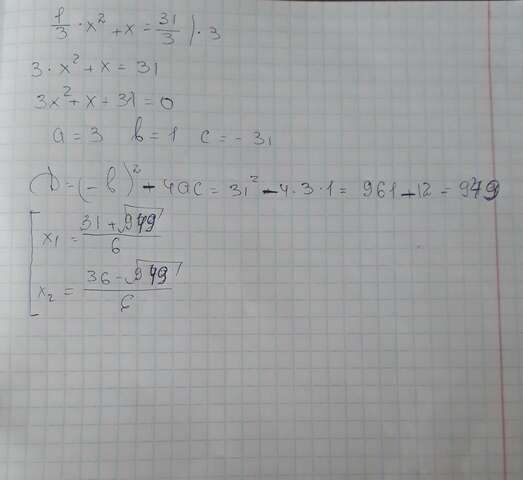 1/3 · x² + x = 31/3 | · 3
3 · x² + x = 31
3x² + x - 31 = 0
a = 3 b = 1 c = - 31
D = (-b)² - 4ac = 31² - 4 · 3 · 1 = 961 - 12 = 949
x₁ = (31 + √949)/6
x₂ = (36 - √949)/6